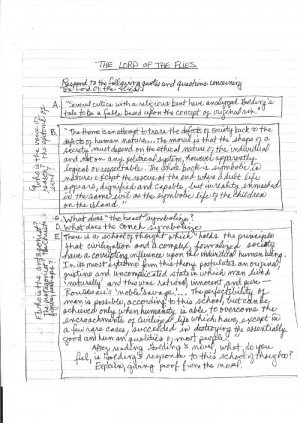 THE LORD OF THE FLIES
Respond to the following quotes and questions concerning
Lord of the Flies
A. "Several critics with a religious bent have analyzed Golding's
tale to be a fable based upon the concept of original sin.
B. "The theme is an attempt to trace the defects of society back to the
defects of human nature... The moral is that the shape of a
society must depend on the ethical nature of the individual
and not on any political system, however apparently
logical or respectable. The whole book is symbolic in
nature except the rescue at the end where adult life
appears, dignified and capable, but in reality enmeshed
in the same evil as the symbolic life of the children
on the island."
What does "the beast" symbolize?
What does the conch symbolize
There is a school of thought which "holds the principle
that civilization and a complex, formalized society
have a corrupting influence upon the individual human being.
In its most extreme form this theory postulates an original,
pristine and uncomplicated state in which man lived
'naturally' and thus was rational, innocent and pure —
Rousseau's 'noble savage'... The perfectibility of
man is possible, according to this school, but can be
achieved only when humanity is able to overcome the
encroachments of civilized life which have, except in
a few rare cases, succeeded in destroying the essentially
good and human qualities of most people."
After reading Golding's novel, what do you
feel is Golding's response to this school of thought?
Explain, giving proof from the novel.